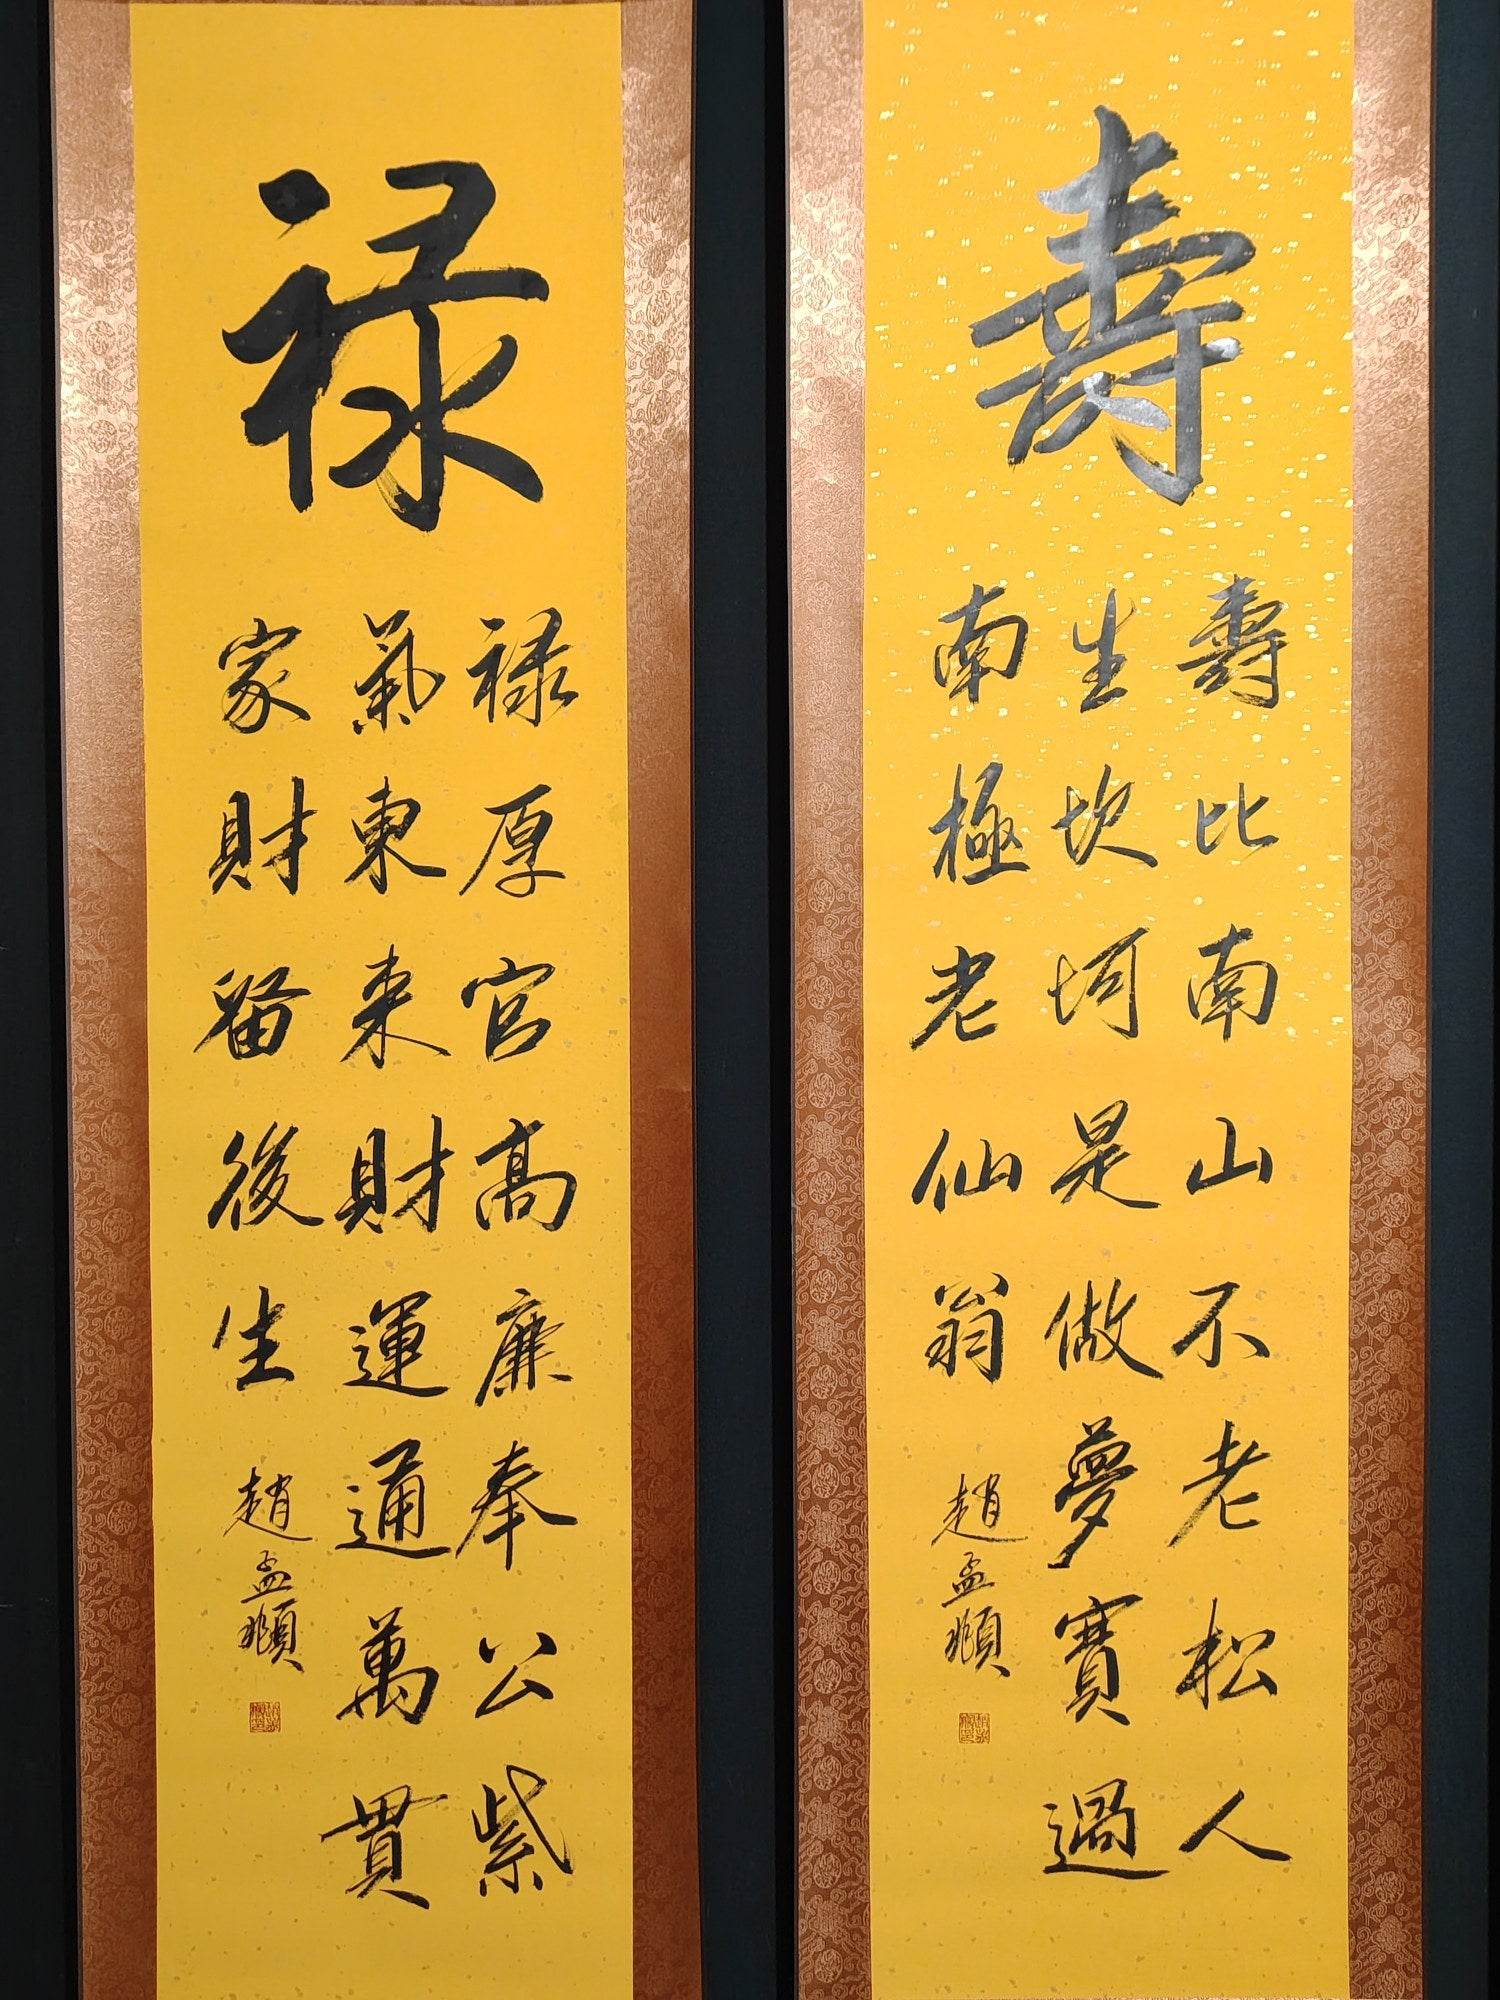 壽
壽比南山不老松人
生坎坷是做夢寶過
南極老仙翁
趙孟頫
禄
禄厚官高廉奉公紫
氣東来財運通萬貫
家財留後生
趙孟頫